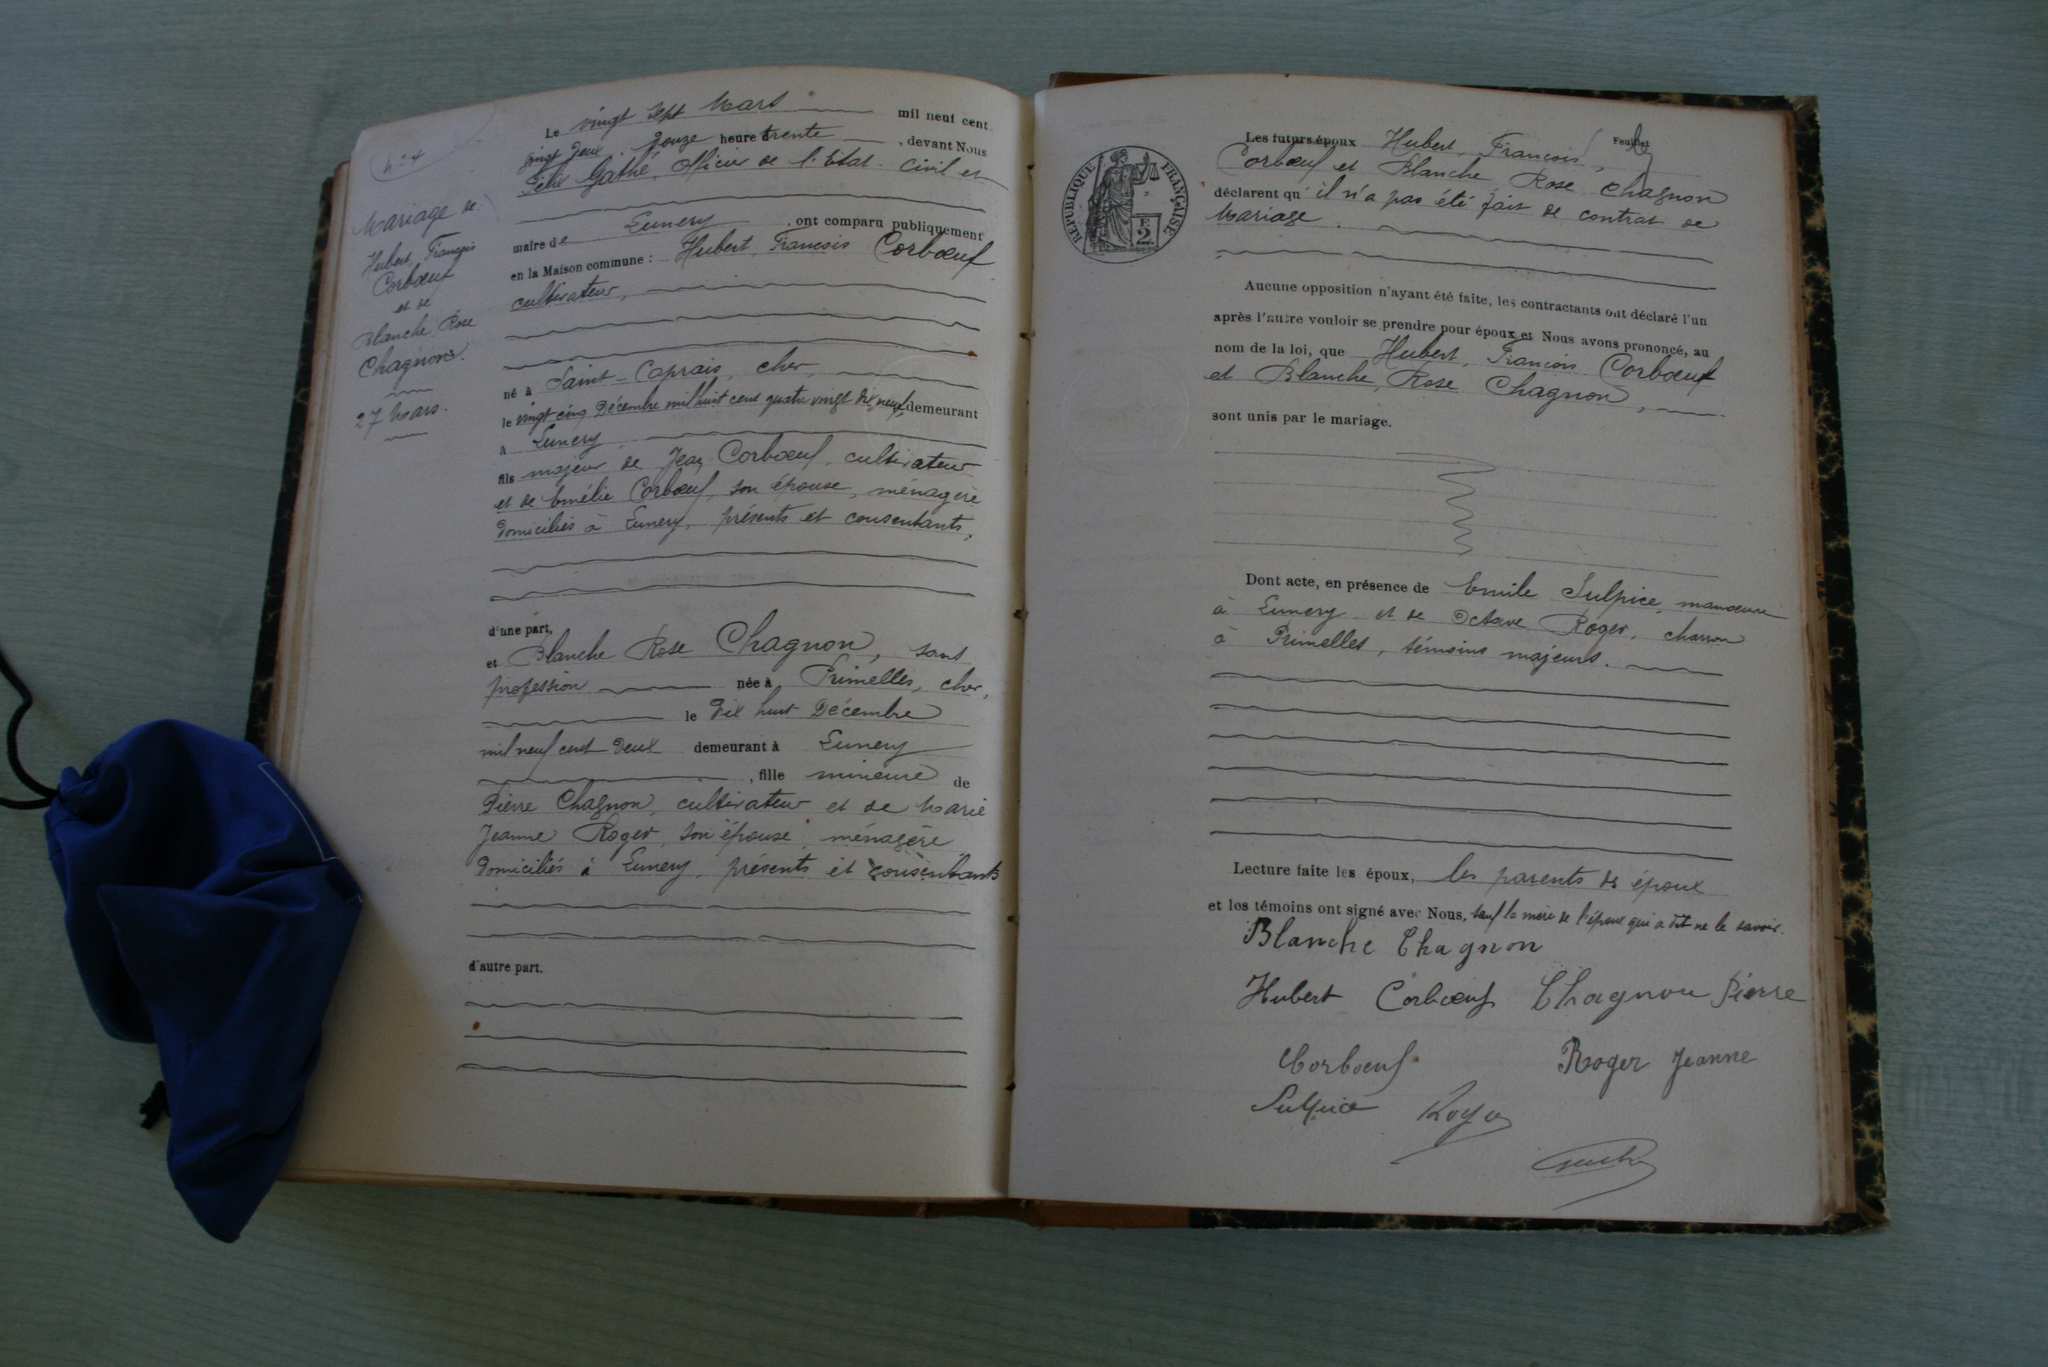 n° 4
Mariage de
Hubert, François
Corbœuf
et de
Blanche Rose
Chagnon.
27 Mars.
Le vingt sept Mars mil neuf cent
vingt deux, douze heure trente, devant Nous
Gathé, Officier de l'Etat-civil et
maire de Lunery, ont comparu publiquement
en la Maison commune : Hubert, François Corbœuf
cultivateur,
né à Saint-Caprais, cher,
le vingt cinq Décembre mil huit cent quatre vingt dix neuf, demeurant
à Lunery
fils majeur de Jean Corbœuf, cultivateur
et de Emélie Corbœuf, son épouse, ménagère
domiciliés à Lunery, présents et consentants,
d'une part,
et Blanche Rose Chagnon, sans
profession née à Primelles, cher,
le dix huit Décembre
mil neuf cent deux demeurant à Lunery
, fille mineure de
Pierre Chagnon, cultivateur et de Marie
Jeanne Roger, son épouse, ménagère
domiciliés à Lunery, présents et consentants
d'autre part.
RÉPUBLIQUE FRANÇAISE
2F
Feuillet
Les futurs époux Hubert, François,
Corbœuf et Blanche Rose Chagnon
déclarent qu'il n'a pas été fait de contrat de
Mariage.
Aucune opposition n'ayant été faite, les contractants ont déclaré l'un
après l'autre vouloir se prendre pour époux et Nous avons prononcé, au
nom de la loi, que Hubert, François Corbœuf
et Blanche, Rose Chagnon,
sont unis par le mariage.
Dont acte, en présence de Emile Sulpice, manœuvre
à Lunery et de Octave Roger, charron
à Primelles, témoins majeurs.
Lecture faite les époux, les parents des époux
et les témoins ont signé avec Nous, sauf la mère de l'époux qui a dit ne le savoir.
Blanche Chagnon
Hubert Corbœuf Chagnon Pierre
Corboeuf Roger Jeanne
Sulpice Roger